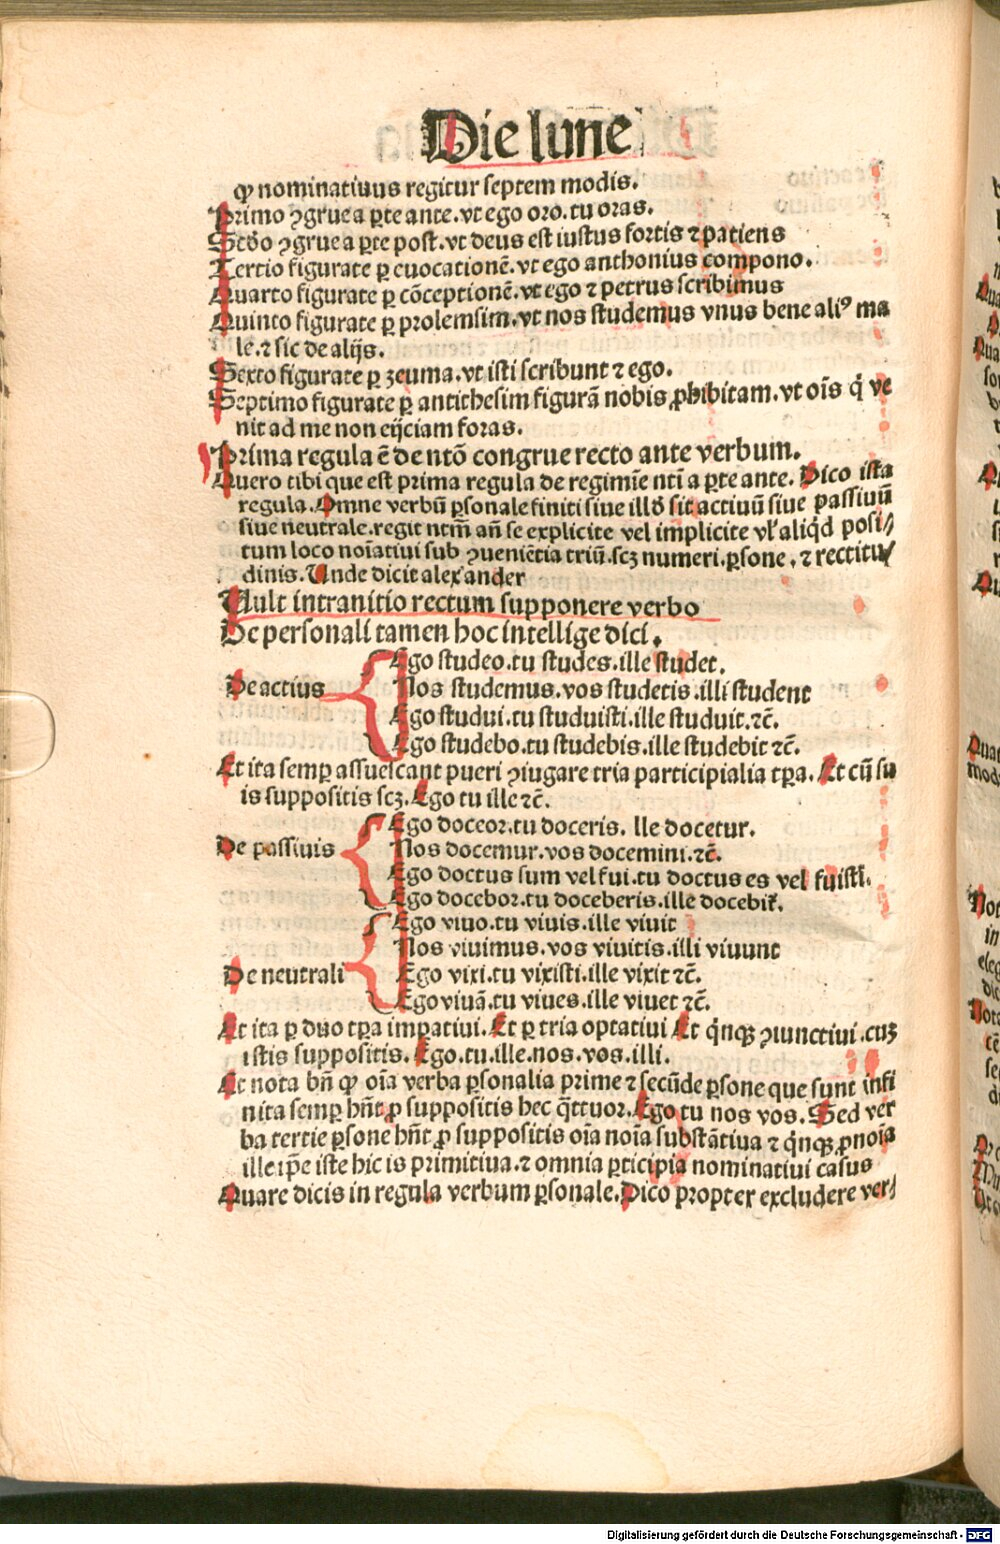 Die lune
ꝙ nominatiuus regitur septem modis.
Primo ꝯgrue a ꝑte ante. vt ego oro. tu oras.
Scďo ꝯgrue a ꝑte post. vt deus est iustus fortis ⁊ patiens
Tertio figurate ꝑ euocationē. vt ego anthonius compono.
Quarto figurate ꝑ cōceptionē. vt ego ⁊ petrus scribimus
Quinto figurate ꝑ prolemsim. vt nos studemus vnus bene aliꝰ ma
le. ⁊ sic de alijs.
Sexto figurate ꝑ zeuma. vt isti scribunt ⁊ ego.
Septimo figurate ꝑ antithesim figurā nobis ꝓhibitam. vt oīs q̇ ve
nit ad me non eijciam foras.
Prima regula ē de ntō congrue recto ante verbum.
Quero tibi que est prima regula de regimīe nti̅ a ꝑte ante. Dico ista
regula. Omne verbū ꝑsonale finiti siue illď sit actiuū siue passiuū
siue neutrale. regit ntm̄ an̄ se explicite vel implicite vl' aliq̇d posi⸗
tum loco noīatiui sub ꝯueniētia triū. scꝫ numeri. ꝑsone. ⁊ rectitu⸗
dinis. Unde dicit alexander
Vult intranitio rectum supponere verbo
De personali tamen hoc intellige dici.
Ego studeo. tu studes. ille studet.
De actius Nos studemus. vos studetis. illi student
Ego studui. tu studuisti. ille studuit. ⁊c̄.
Ego studebo. tu studebis. ille studebit ⁊c̄.
Et ita semꝑ assuescant pueri ꝯiugare tria participialia tꝑa. Et cū su
is suppositis scꝫ. Ego tu ille ⁊c̄.
Ego doceor. tu doceris. lle docetur.
De passiuis Nos docemur. vos docemini. ⁊c̄.
Ego doctus sum vel fui. tu doctus es vel fuisti.
Ego docebor. tu doceberis. ille docebit̉.
Ego viuo. tu viuis. ille viuit
Nos viuimus. vos viuitis. illi viuunt
De neutrali Ego vixi. tu vixisti. ille vixit ⁊c̄.
Ego viuā. tu viues. ille viuet ⁊c̄.
Et ita ꝑ duo tꝑa impatiui. Et ꝑ tria optatiui Et q̇nqꝫ ꝯiunctiui. cuꝫ
istis suppositis. Ego. tu. ille. nos. vos. illi.
Et nota bn̄ ꝙ oīa verba ꝑsonalia prime ⁊ secūde ꝑsone que sunt infi
nita semꝑ hn̄t ꝓ suppositis hec q̄ttuor. Ego tu nos vos. Sed ver
ba tertie ꝑsone hn̄t ꝓ suppositis oīa noīa substātiua ⁊ q̇nqꝫ ꝓnoīa
ille ip̄e iste hic is primitiua. ⁊ omnia ꝑticipia nominatiui casus
Quare dicis in regula verbum ꝑsonale. Dico propter excludere ver⸗
Digitalisierung gefördert durch die Deutsche Forschungsgemeinschaft - DFG